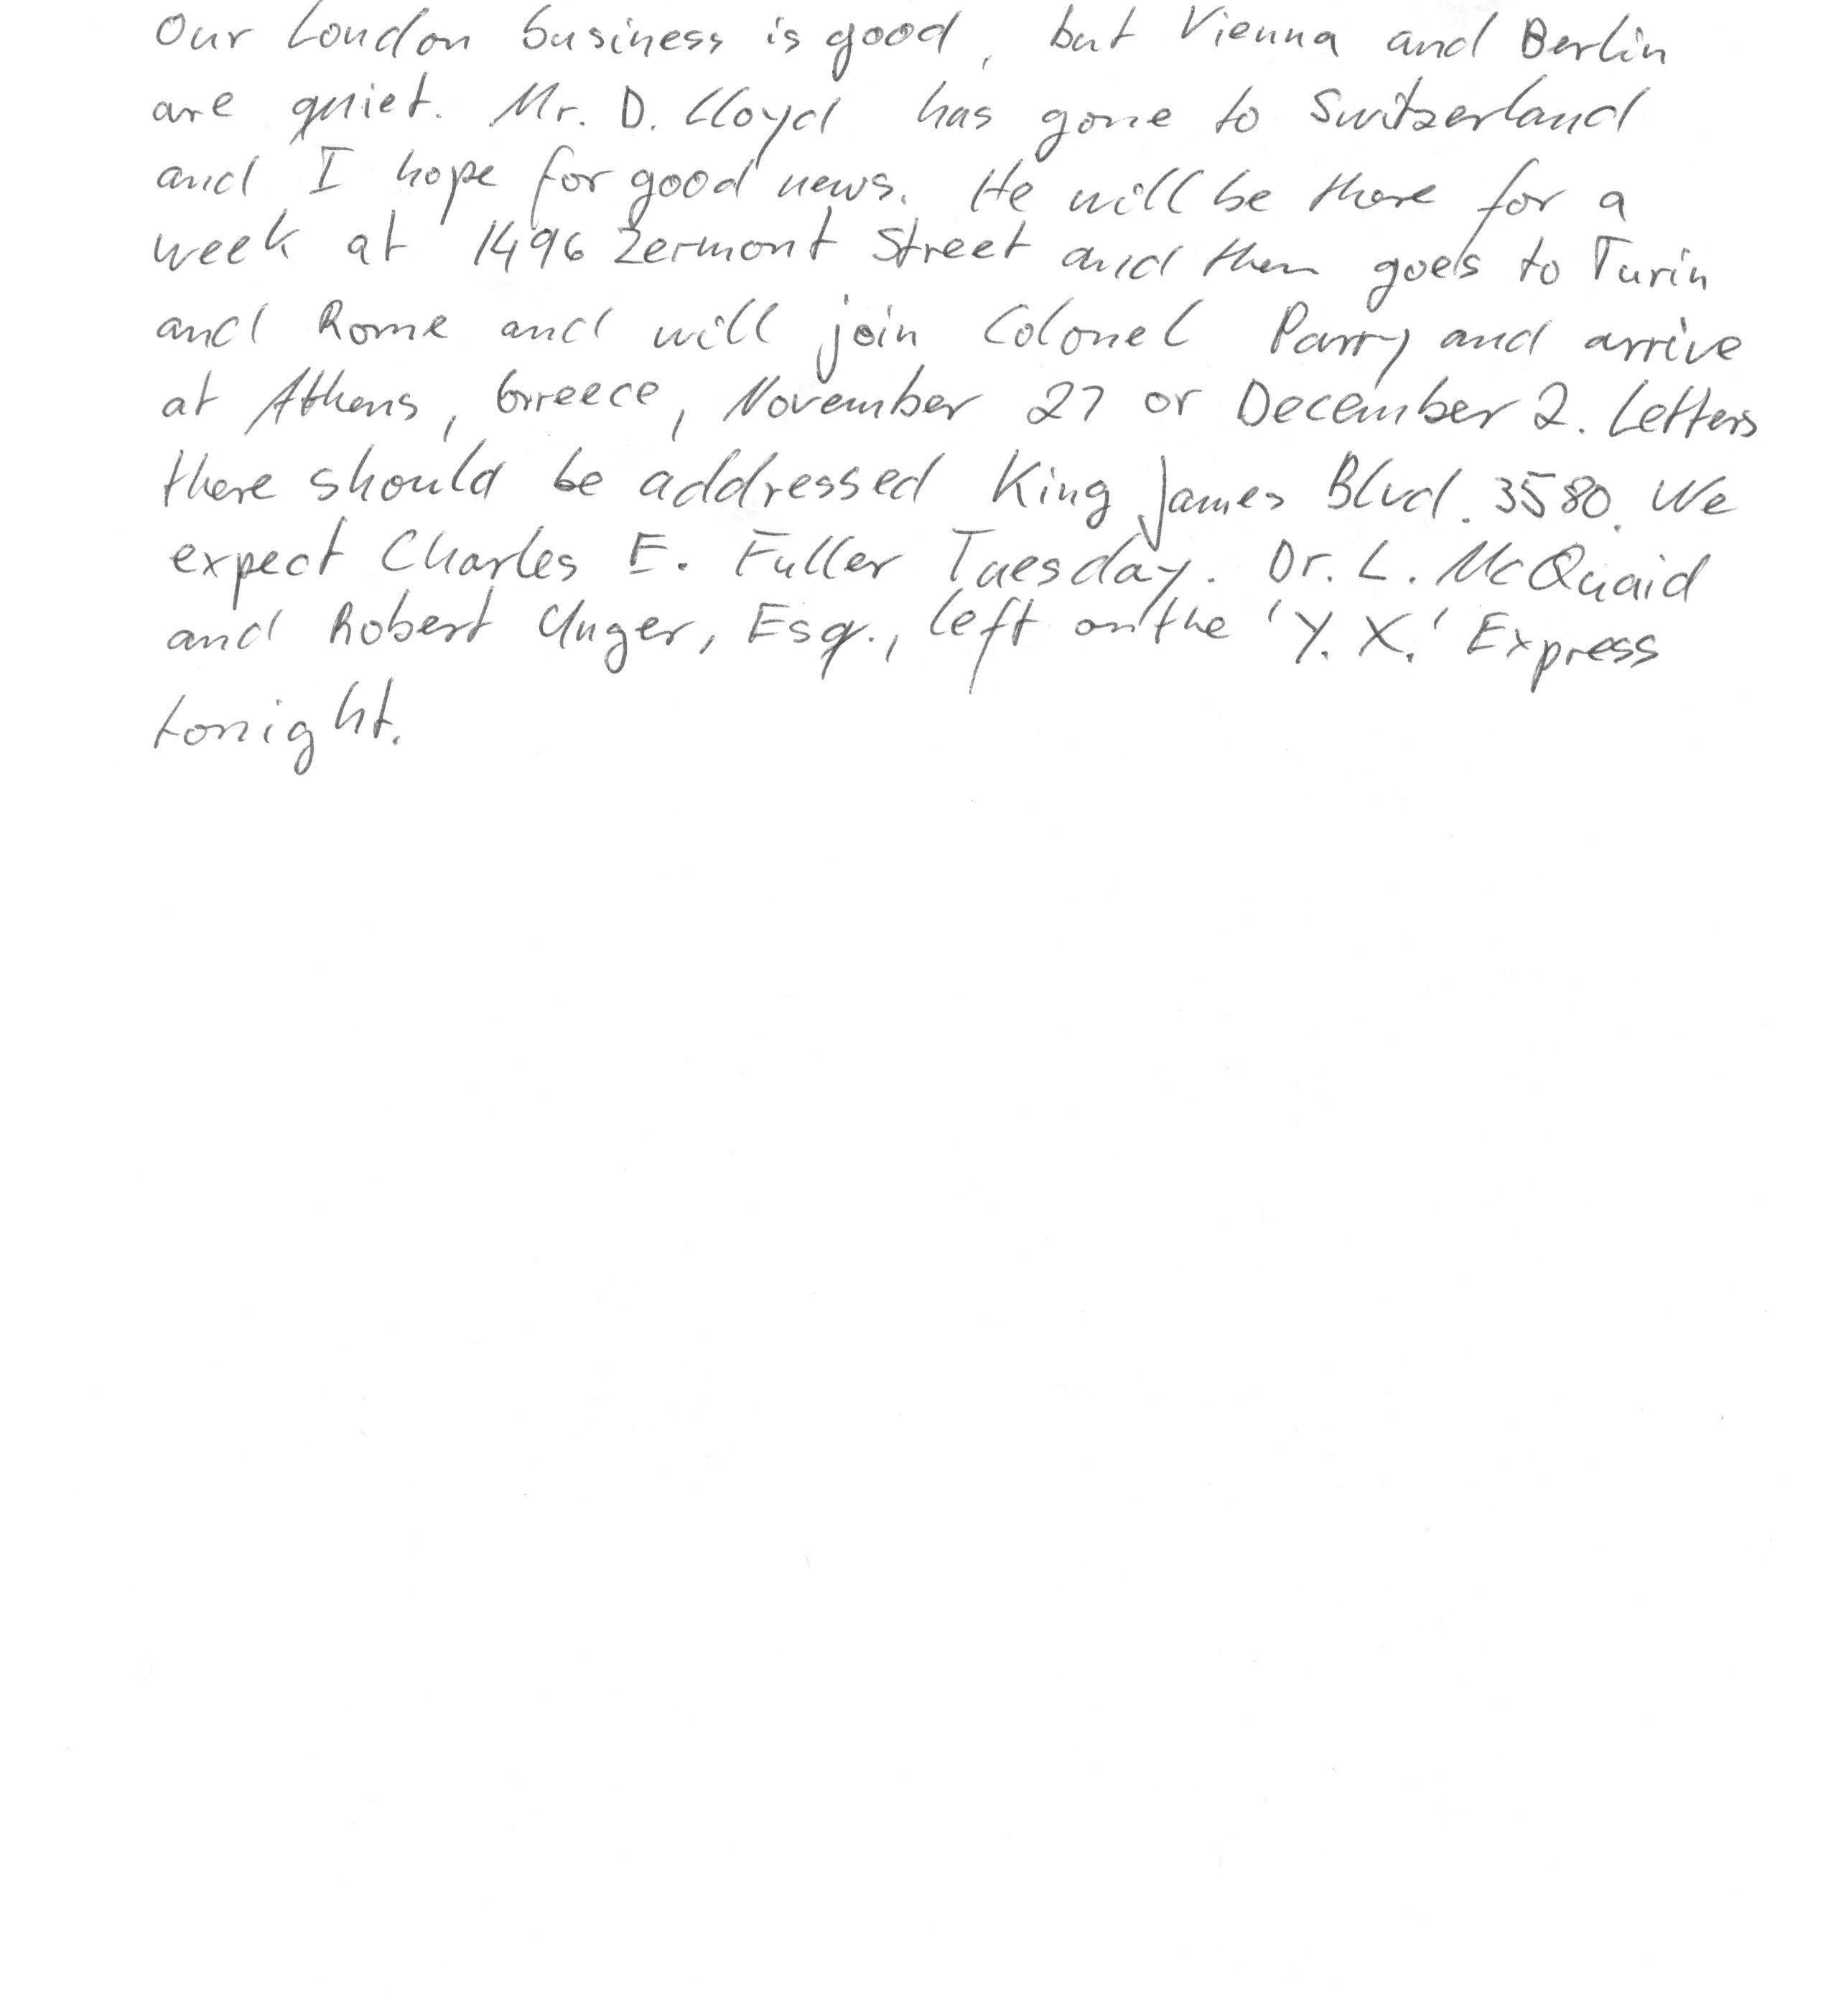 Our London business is good, but Vienna and Berlin
are quiet. Mr. D. Lloyd has gone to Switzerland
and I hope for good news. He will be there for a
week at 1496 Zermont Street and then goes to Turin
and Rome and will join Colonel Parry and arrive
at Athens, Greece, November 27 or December 2. Letters
there should be addressed King James Blvd. 3580. We
expect Charles E. Fuller Tuesday. Dr. L. McQuaid
and Robert Unger, Esq., left on the 'Y. X.' Express
tonight.